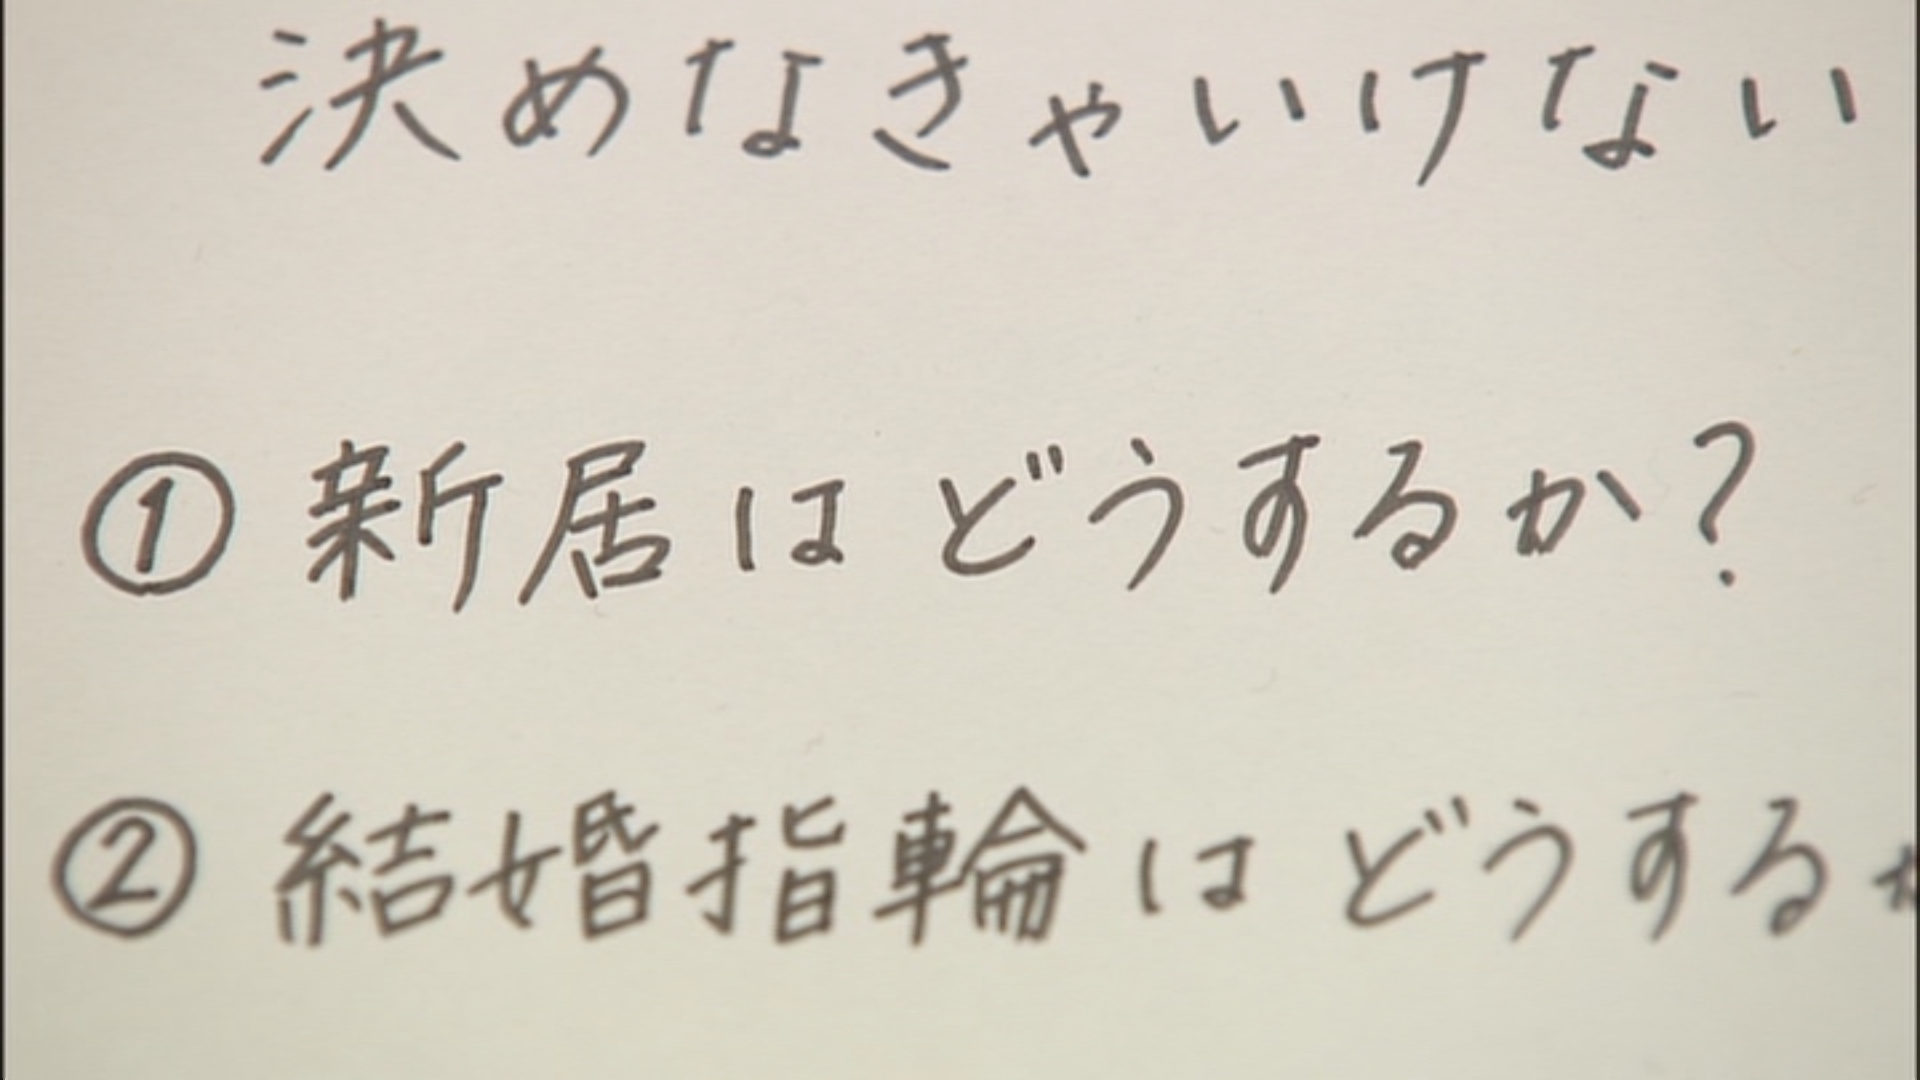 決めなきゃいけない
① 新居はどうするか?
② 結婚指輪はどうするか